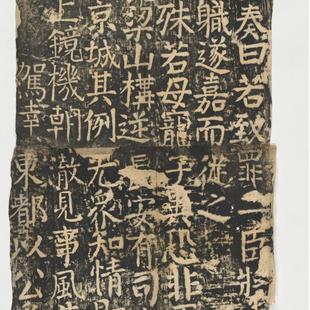 奏曰若致罪二臣將
職遂嘉而從之
殊若母龍子異恐非
梁山構逆長安有司
京城其例尤衆知情
上鏡機朝澈見事風
駕幸東都以公